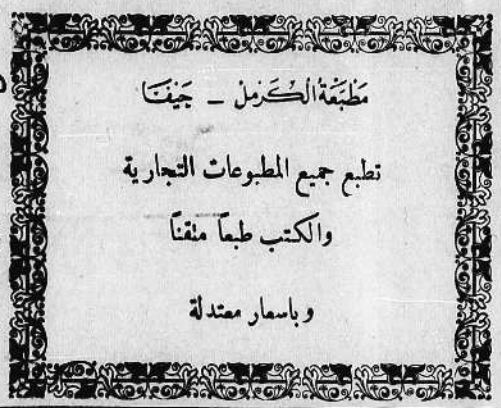 مَطْبَعَةُ الكَرْمِلْ – حَيْفَا
تطبع جميع المطبوعات التجارية
والكتب طبعاً متقناً
وباسعار معتدلة